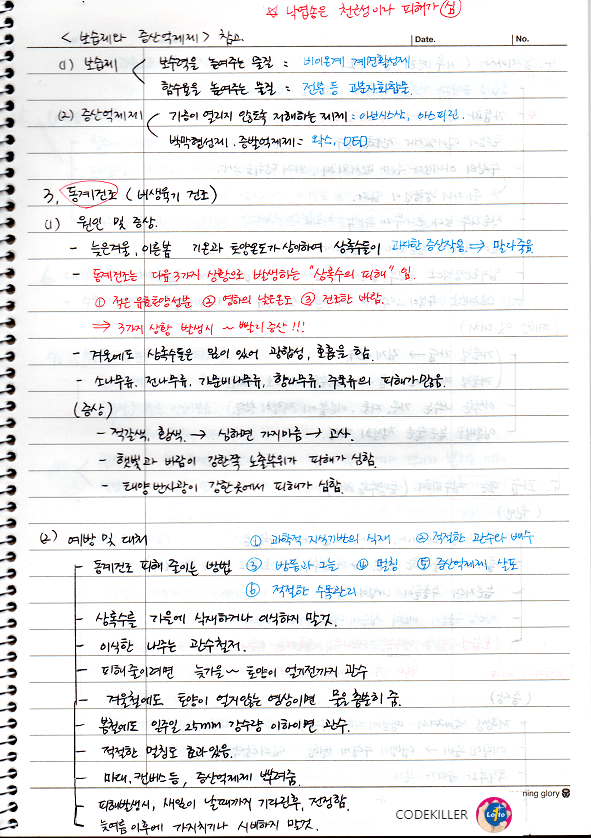 ☆ 낙엽송은 천근성이나 피해가 심
Date. No.
< 보습제와 증산억제제 > 참고.
(1) 보습제 보수력을 높여주는 물질 = 비이온계 계면활성제
함수량을 높여주는 물질 = 전분 등 고분자화합물.
(2) 증산억제제 기공이 열리지 않도록 저해하는 제제 : 아브시스산, 아스피린.
박막형성제. 증발억제제 = 왁스, OED
3. 동계건조 ( 비생육기 건조 )
(1) 원인 및 증상.
- 늦은겨울, 이른봄 기온과 토양온도가 상이하여 상록수들이 과다한 증산작용 ⇒ 말라죽음
- 동계건조는 다음 3가지 상황으로 발생하는 "상록수의 피해" 임.
① 적은 유효토양성분 ② 영하의 낮은온도 ③ 건조한 바람
⇒ 3가지 상황 발생시 ~ 빨리 증산 !!!
- 겨울에도 상록수들은 잎이 있어 광합성, 호흡을 함.
- 소나무류, 전나무류, 가문비나무류, 향나무류, 주목류의 피해가 많음.
(증상)
- 적갈색, 황색. → 심하면 가지마름 → 고사.
- 햇빛과 바람이 강한쪽 노출부위가 피해가 심함.
- 태양반사광이 강한곳에서 피해가 심함.
(2) 예방 및 대처 ① 과학적 지식기반의 식재 ② 적절한 관수와 배수
- 동계건조 피해 줄이는 방법 ③ 방풍과 그늘 ④ 멀칭 ⑤ 증산억제제 살포
⑥ 적절한 수목관리
- 상록수를 가을에 식재하거나 이식하지 말것.
- 이식한 나무는 관수철저.
- 피해 줄이려면 늦가을~ 토양이 얼기전까지 관수
- 겨울철에도 토양이 얼지않는 영상이면 물을 충분히 줌.
- 봄철에도 일주일 25mm 강수량 이하이면 관수.
- 적절한 멀칭도 효과있음.
- 마대. 캔버스 등, 증산억제제 뿌려줌.
- 피해발생시, 새잎이 날때까지 기다린후, 전정함.
- 늦여름 이후에 가지치기나 시비하지 말것.
ning glory
CODEKILLER Lotto